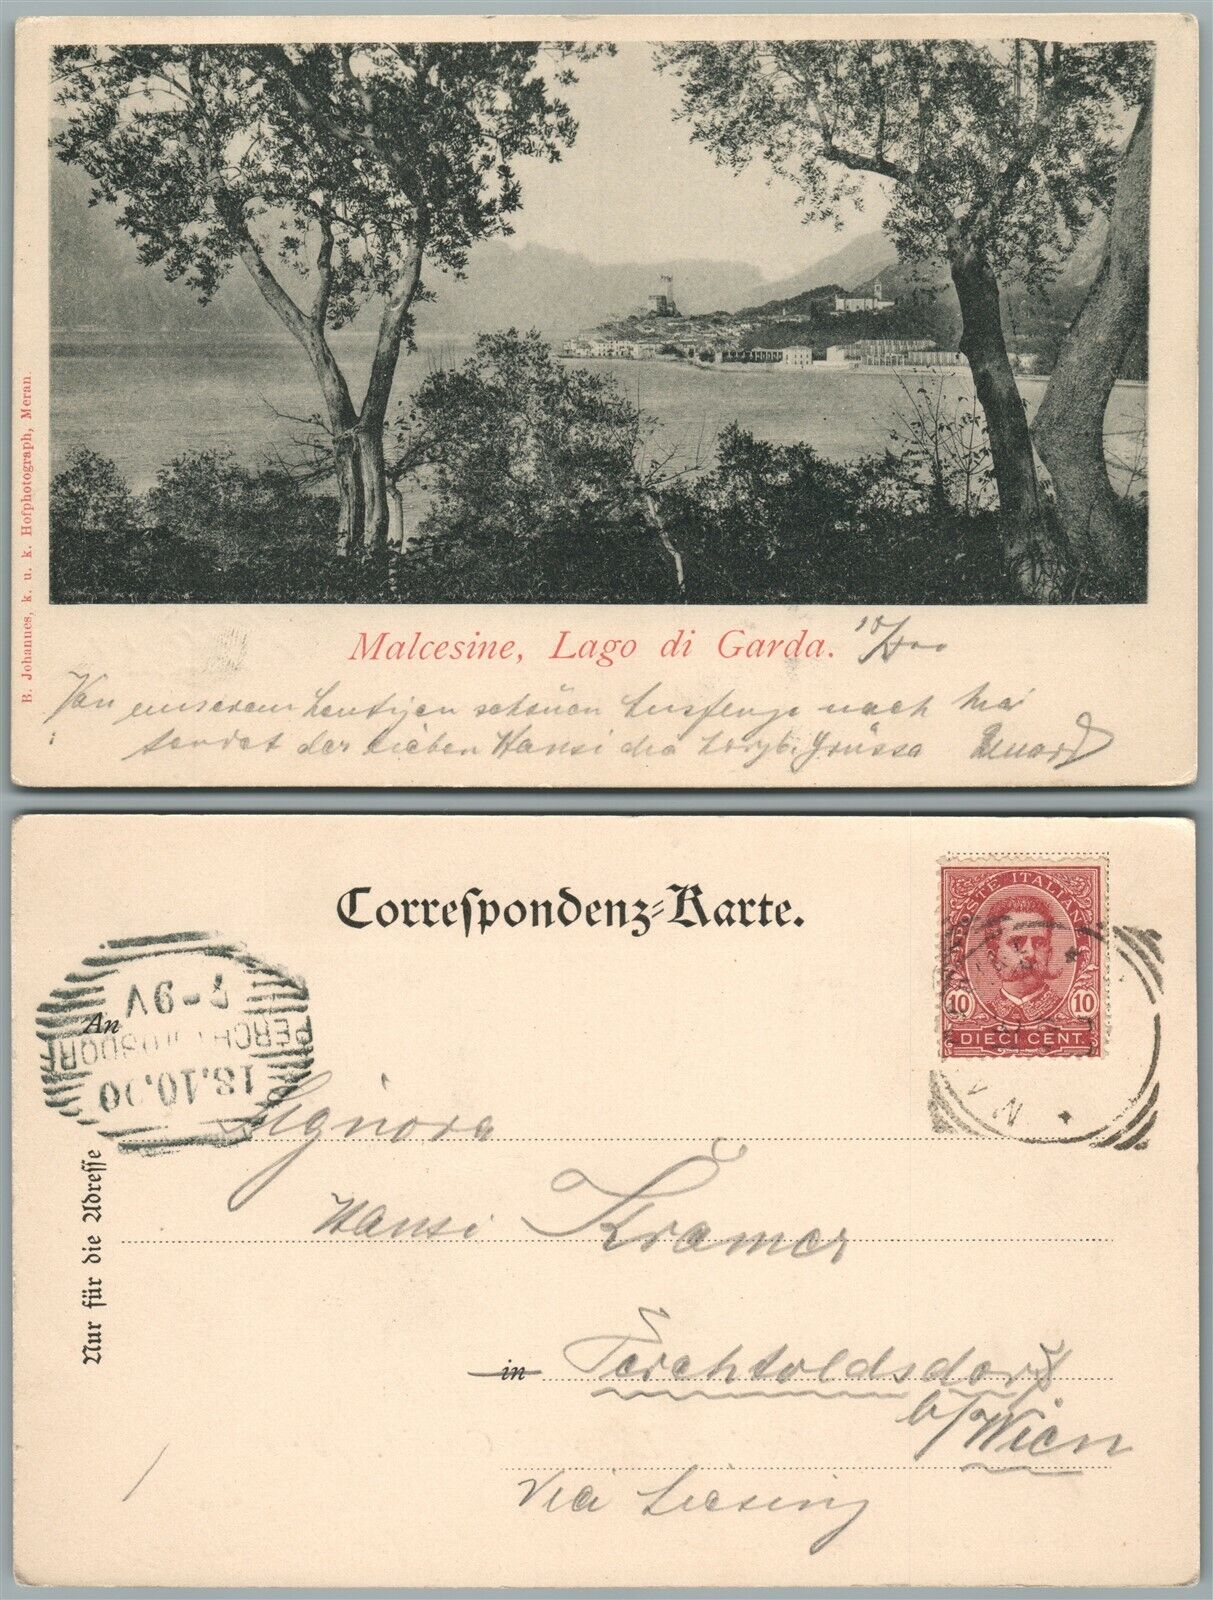 B. Johannes, k. u. k. Hofphotograph, Meran.
Malcesine, Lago di Garda.
Von unserem heutigen schönen Ausfluge nach Mal
sendet der lieben Hansi die herzl. Grüsse
Correspondenz-Karte.
POSTE ITALIANE
10 10
DIECI CENT.
7-9V
PERCHTOLDSDORF
18.10.00
An
Signora
Hansi Kramer
in Perchtoldsdorf
b/Wien
via Liesing
Nur für die Adresse